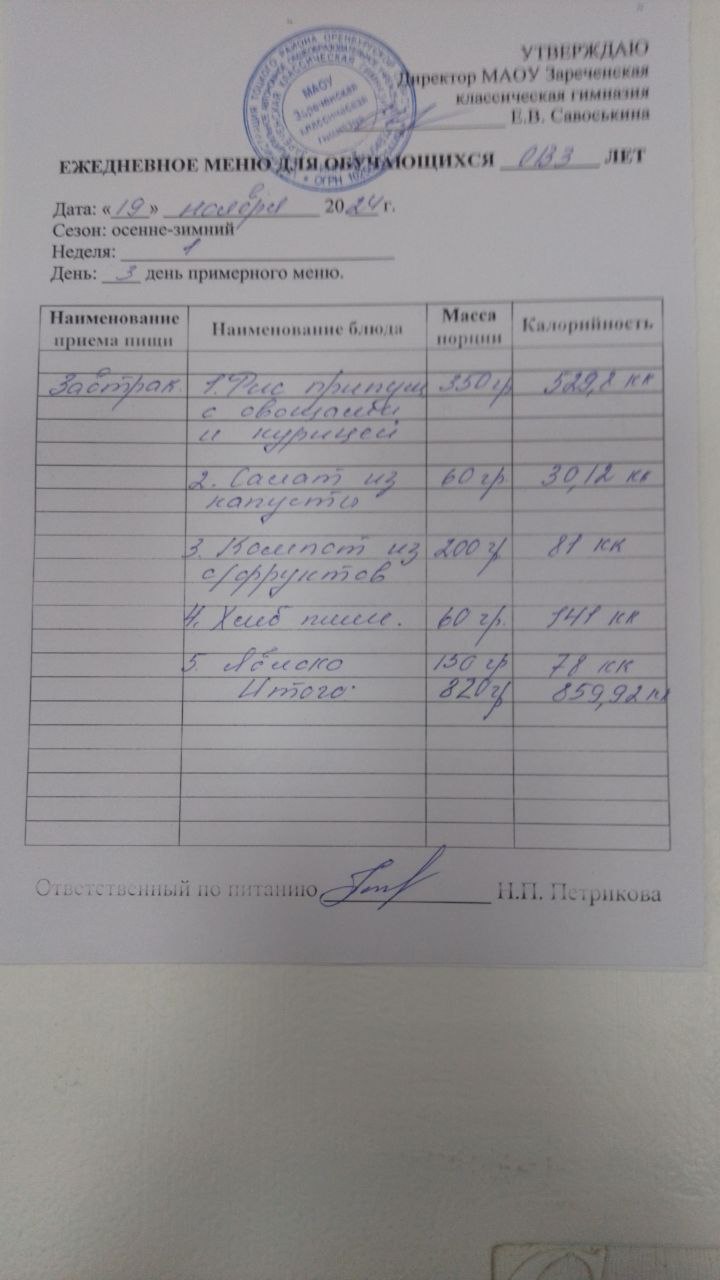 УТВЕРЖДАЮ
Директор МАОУ Зареченская
классическая гимназия
Е.В. Савоськина
МАОУ
Зареченская
классическая
гимназия
ЕЖЕДНЕВНОЕ МЕНЮ ДЛЯ ОБУЧАЮЩИХСЯ ОВЗ ЛЕТ
Дата: «19» ноября 2024 г.
Сезон: осенне-зимний
Неделя: 1
День: 3 день примерного меню.
Наименование приема пищи Наименование блюда Масса порции Калорийность
Завтрак 1. Рис припущ 350 гр 529,8 кк
с овощами
и курицей
2. Салат из 60 гр 30,12 кк
капусты
3. Компот из 200 гр 81 кк
с/фруктов
4. Хлеб пшен. 60 гр. 141 кк
5. Яблоко 150 гр 78 кк
Итого: 820 гр 859,92 кк
Ответственный по питанию Н.П. Петрикова